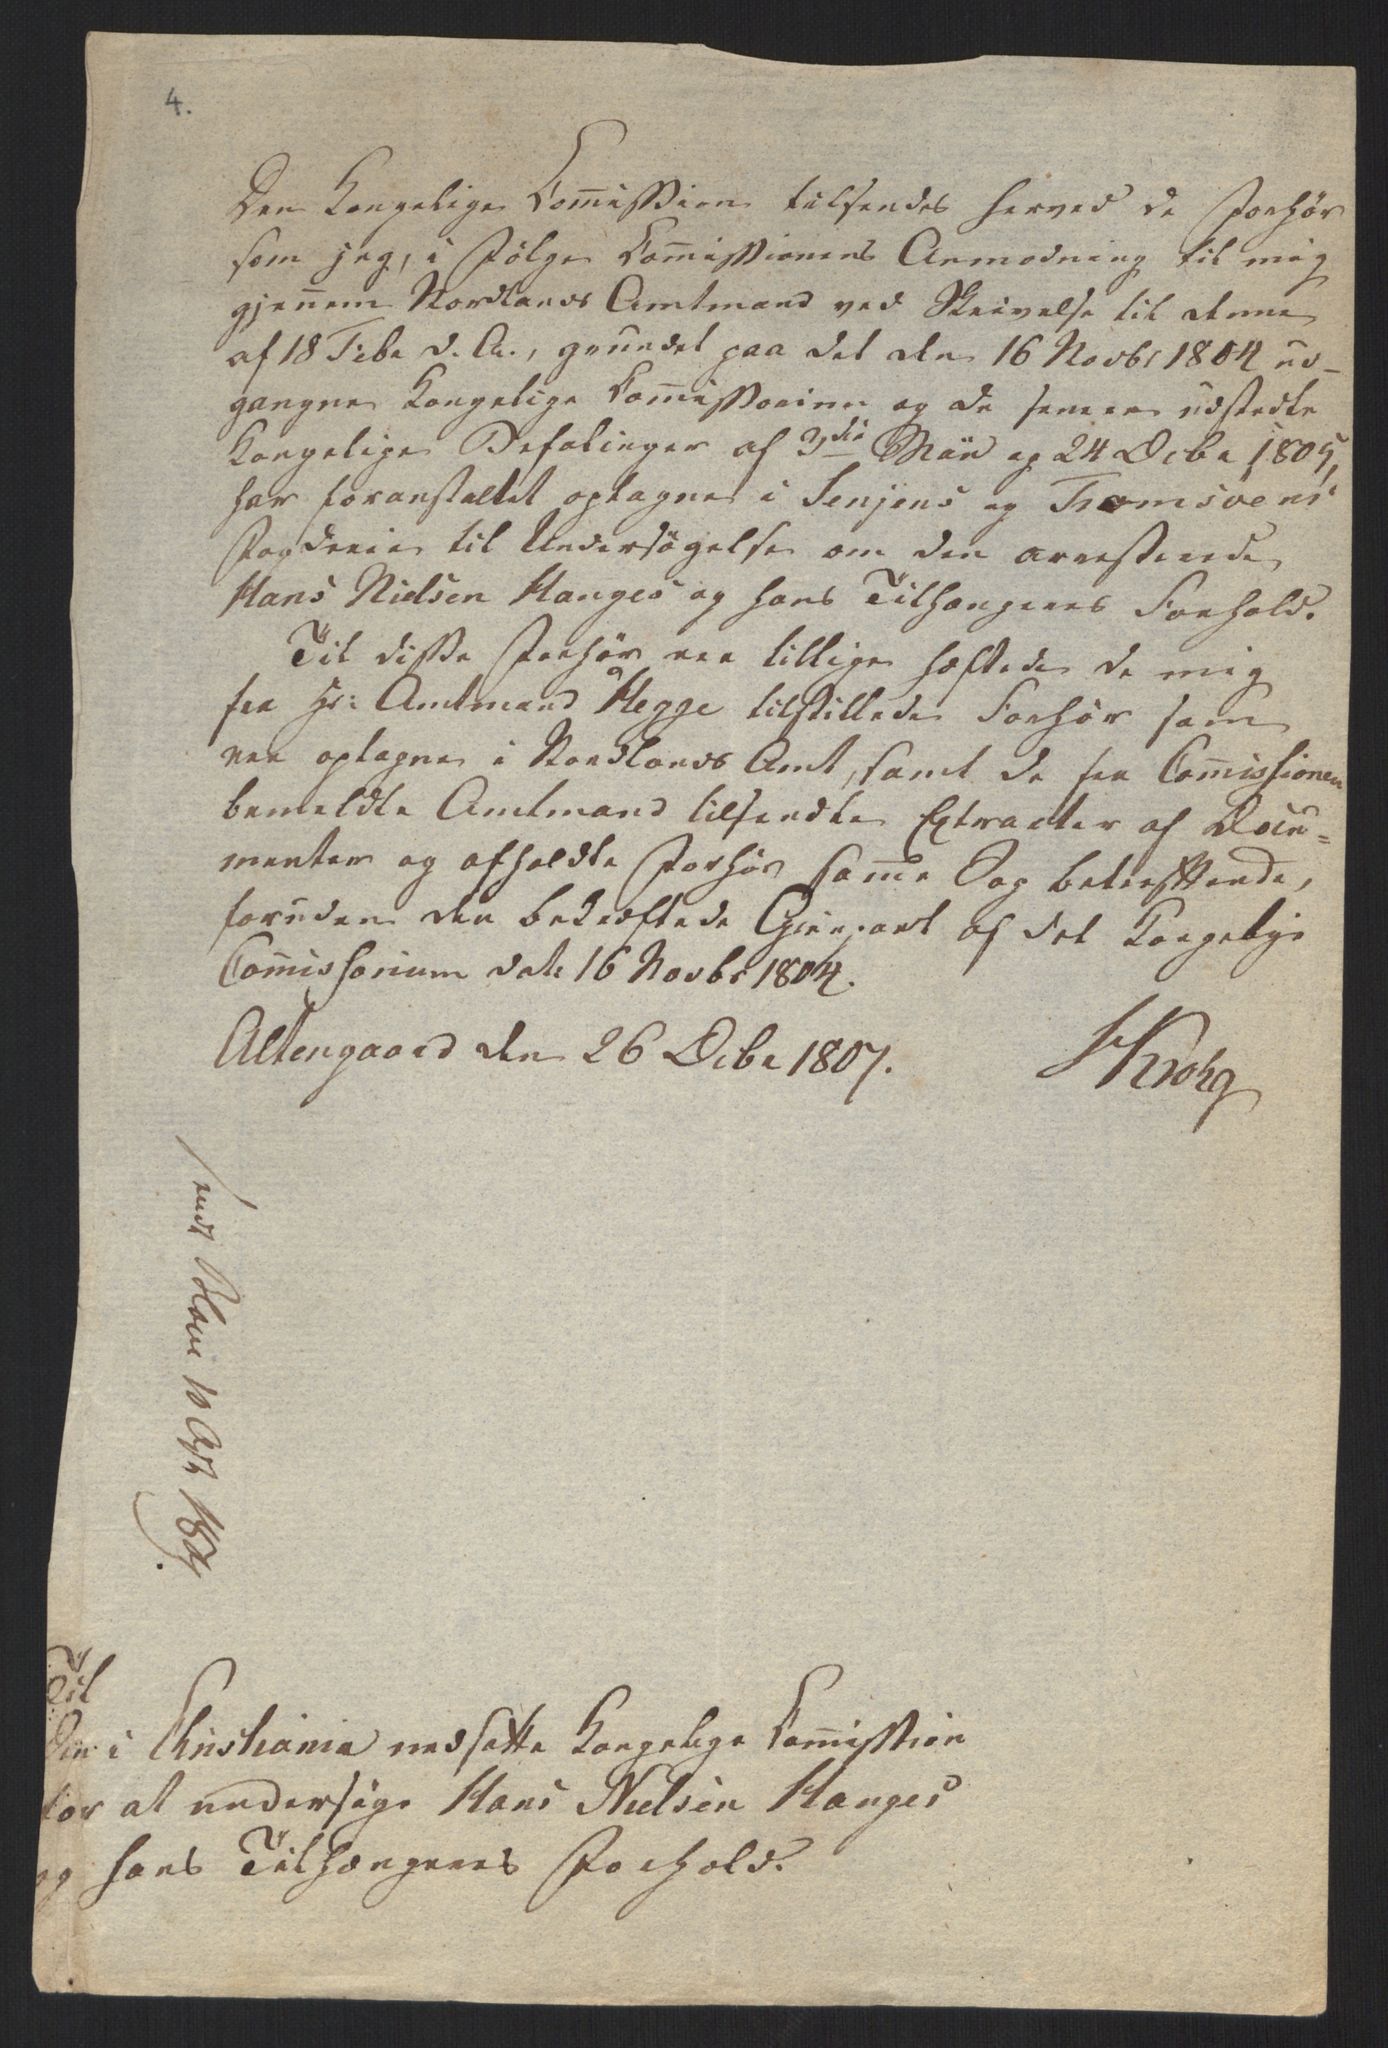 4.
Den Kongelige Com̄ission tilsendes herved de Forhør
som jeg, i Følge Com̄issionens Anmodning til mig
gjen̄em Nordlands Amtmand ved Skrivelse til denne
af 18 Febr d. A., grundet paa det den 16 Novbr 1804 ud-
gangne Kongelige Com̄issorium og de senere udstedte
Kongelige Befalinger af 3die Mai og 24 Decbr 1805,
har foranstaltet optagne i Senjens og Tromsøens
Fogderie til Undersøgelse om den arresterede
Hans Nielsen Hauges og hans Tilhængeres Forhold.
Til disse Forhør ere tillige hæftede de mig
fra Hr: Amtmand Hegge tilstillede Forhør som
ere optagne i Nordlands Amt, samt de fra Com̄issionen
bemeldte Amtmand tilsendte Extracter af Docu=
menter og afholdte Forhør sam̄e Sag betreffende,
foruden den bekræftede Gienpart af det Kongelige
Com̄issorium dat: 16 Novbr 1804.
Altengaard den 26 Decbr 1807.
HKrohg
10
Til
Den i Christiania nedsatte Kongelige Com̄ission
for at undersøge Hans Nielsen Hauges
og hans Tilhængeres Forhold.